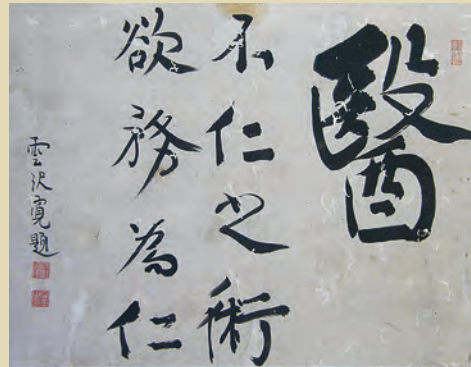 醫
不仁之術
欲務為仁
雲沢寛題